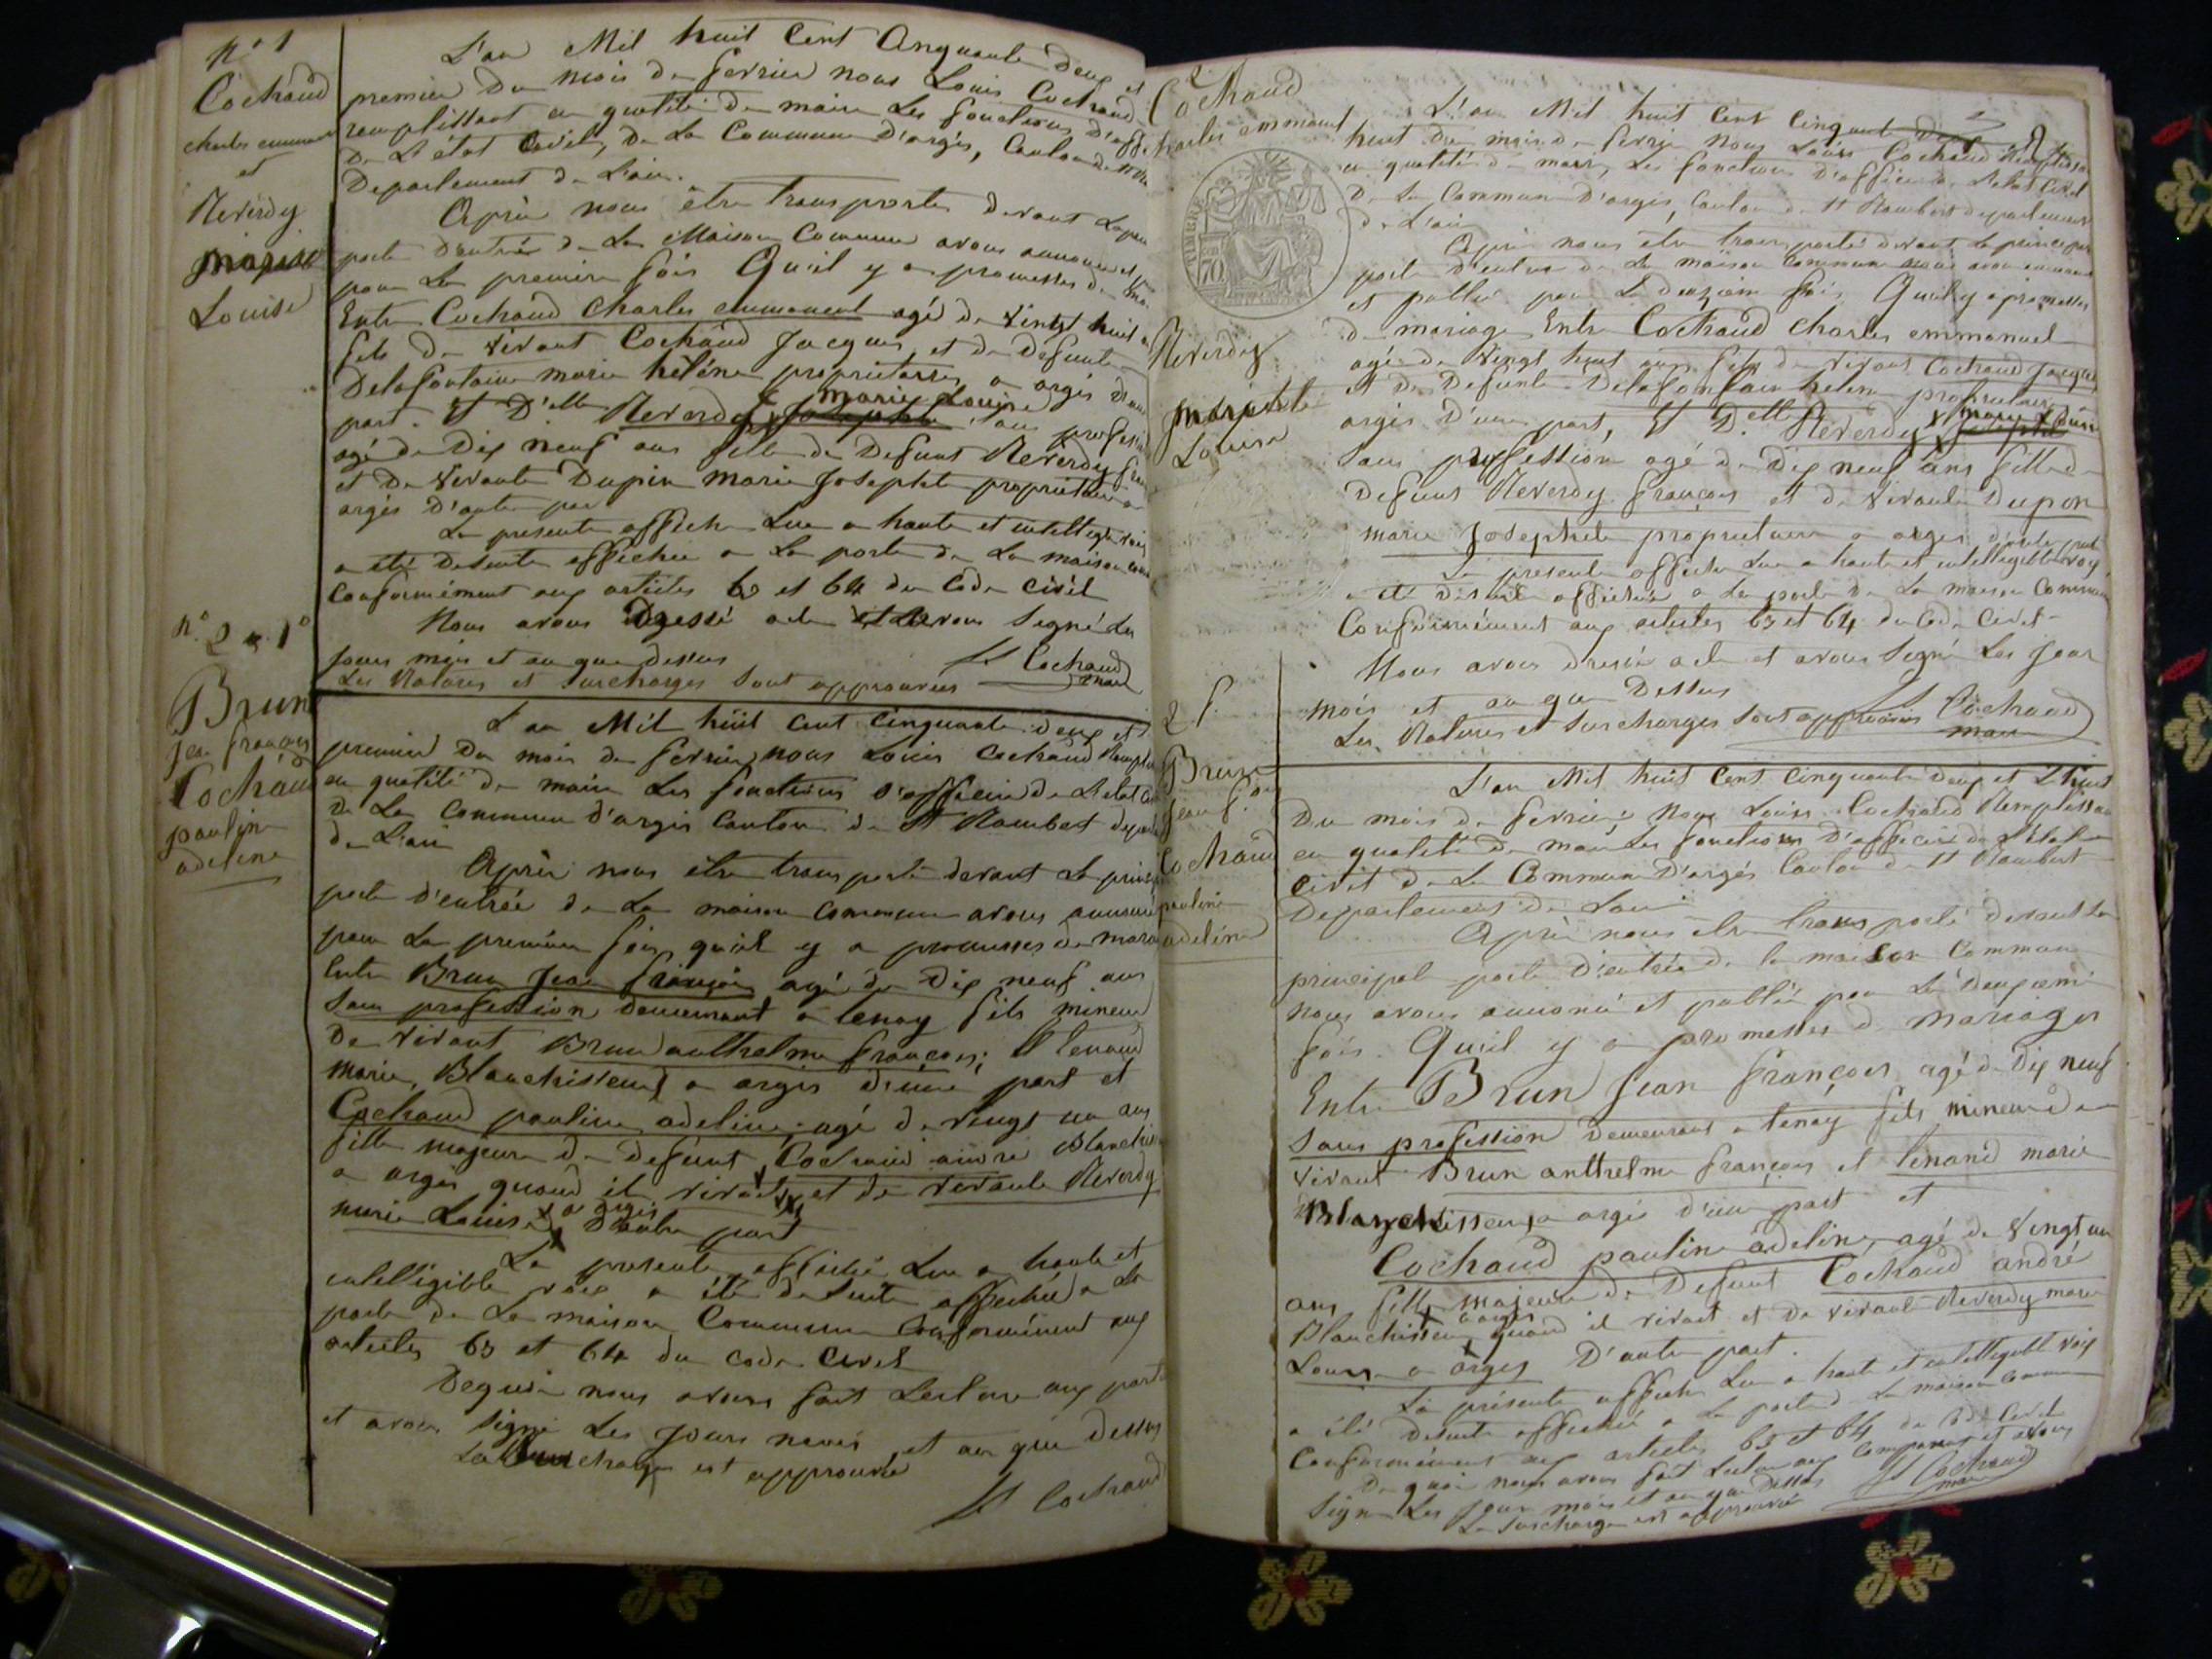 N° 1
Cochaud
charles emmanuel
et
Reverdy
marie
Louise
L'an Mil huit Cent Cinquante Deux et
premier Du mois De fevrier nous Louis Cochaud
remplissant en qualité De maire Les fonctions d'off
De L'état Civil, De La Commune D'argis, Canton de St
Departement De L'ain.
Après nous être transporté devant La
porte D'entrée De La Maison Commune avons annoncé et
pour La premiere fois Qu'il y a promesses De
Entre Cochaud Charles emmanuel agé De vingt huit
fils De vivant Cochaud Jacques et De Defunte
Delafontaine marie hélène proprietaires a argis D'une
part. Et D'elle Reverdy x marie Louise sans
agé De Dix neuf ans fille De Defunt Reverdy
et De vivante Dupin marie Josephte proprietaire a
argis D'autre par
La presente affiche Lue a haute et intelligible
a été Desuite affichée a La porte De La maison
Conformément aux articles 63 et 64 du Code Civil
Nous avons Dressé acte et avons Signé Les
Jours mois et an que dessus
Les Ratures et Surcharges Sont approuvées
Ls Cochaud
maire
N° 2 1°
Brun
jean françois
Cochaud
pauline
adeline
L'an Mil huit cent Cinquante deux et
premier Du mois De fevrier nous Louis Cochaud
en qualité De maire Les fonctions D'officier De L'état
De La Commune d'argis Canton De St Rambert
De L'ain
Après nous être transporté devant La
porte d'entrée De La maison Commune avons annoncé
pour La premiere fois qu'il y a promesses De
Entre Brun Jean françois agé De Dix neuf ans
Sans profession Demeurant a tenay fils mineur
De vivant Brun anthelme françois, et tenand
marie, Blanchisseurs a argis D'une part et
Cochaud pauline adeline, agé De vingt un ans
fille majeure De Defunt Cochaud andré
a argis quand il vivait et de vivante Reverdy
marie Louise x a argis D'autre part
La presente affiche Lue a haute et
intelligible voix a été De Suite affichée a La
porte De La maison Commune Conformément aux
articles 63 et 64 du code Civil
Dequoi nous avons fait Lecture aux
et avons Signé Les Jours mois et an que Dessus
La Surcharge est approuvée
Ls Cochaud
2
Cochaud
charles emmanuel
Reverdy
marie
Louise
L'an Mil huit Cent Cinquante
huit du mois De fevrier Nous Louis Cochaud Remplissant
en qualité De maire, Les fonctions D'officier De L'état Civil
De La Commune D'argis, Canton De St Rambert departement
De L'ain
Après nous être transporté devant La principale
porte D'entrée De La maison Commune nous avons annoncé
et publié pour La Deuxieme fois Qu'il y a promesses
De mariage Entre Cochaud Charles emmanuel
agé De Vingt huit ans fils De vivant Cochaud Jacques
et De Defunte Delafontaine helene proprietaires
argis D'une part, Et D.elle Reverdy x marie Louise
Sans profession agé De Dix neuf ans fille De
Defunt Reverdy françois et De vivante Dupon
marie Josephte proprietaire a argis d'autre part
La presente affiche Lue a haute et intelligible voix
a été De suite affichée a La porte De La maison Commune
Conformément aux articles 63 et 64 du Code Civil
Nous avons dressé acte et avons Signé Les Jour
mois et an que Dessus
Les Ratures et Surcharges Sont approuvées
Ls Cochaud
maire
2
Brun
jean f.ois
Cochaud
pauline
adeline
L'an Mil huit Cent Cinquante Deux et Le huit
Du mois De fevrier, Nous Louis Cochaud Remplissant
en qualité De maire Les fonctions D'officier De L'état
Civil De La Commune D'argis Canton De St Rambert
Departement De L'ain
Après nous être transporté devant La
principal porte D'entrée De la maison Commune
nous avons annoncé et publié pour La Deuxieme
fois. Qu'il y a promesses De mariages
Entre Brun Jean françois agé De Dix neuf
Sans profession Demeurant a tenay fils mineur De
vivant Brun anthelme françois et tenand marie
Blanchisseurs a argis d'une part et
Cochaud pauline adeline, agé De vingt un
ans fille majeure De Defunt Cochaud andré
Blanchisseur x a argis quand il vivait et De vivante Reverdy marie
Louise a argis D'autre part.
La présente affiche Lue a haute et intelligible voix
a été Desuite affichée a La porte De La maison Commune
Conformément aux articles 63 et 64 du Code Civil
De quoi nous avons fait Lecture aux Comparants et avons
Signé Les Jour mois et an que Dessus
La Surcharge est approuvée
Ls Cochaud
maire
TIMBRE
70